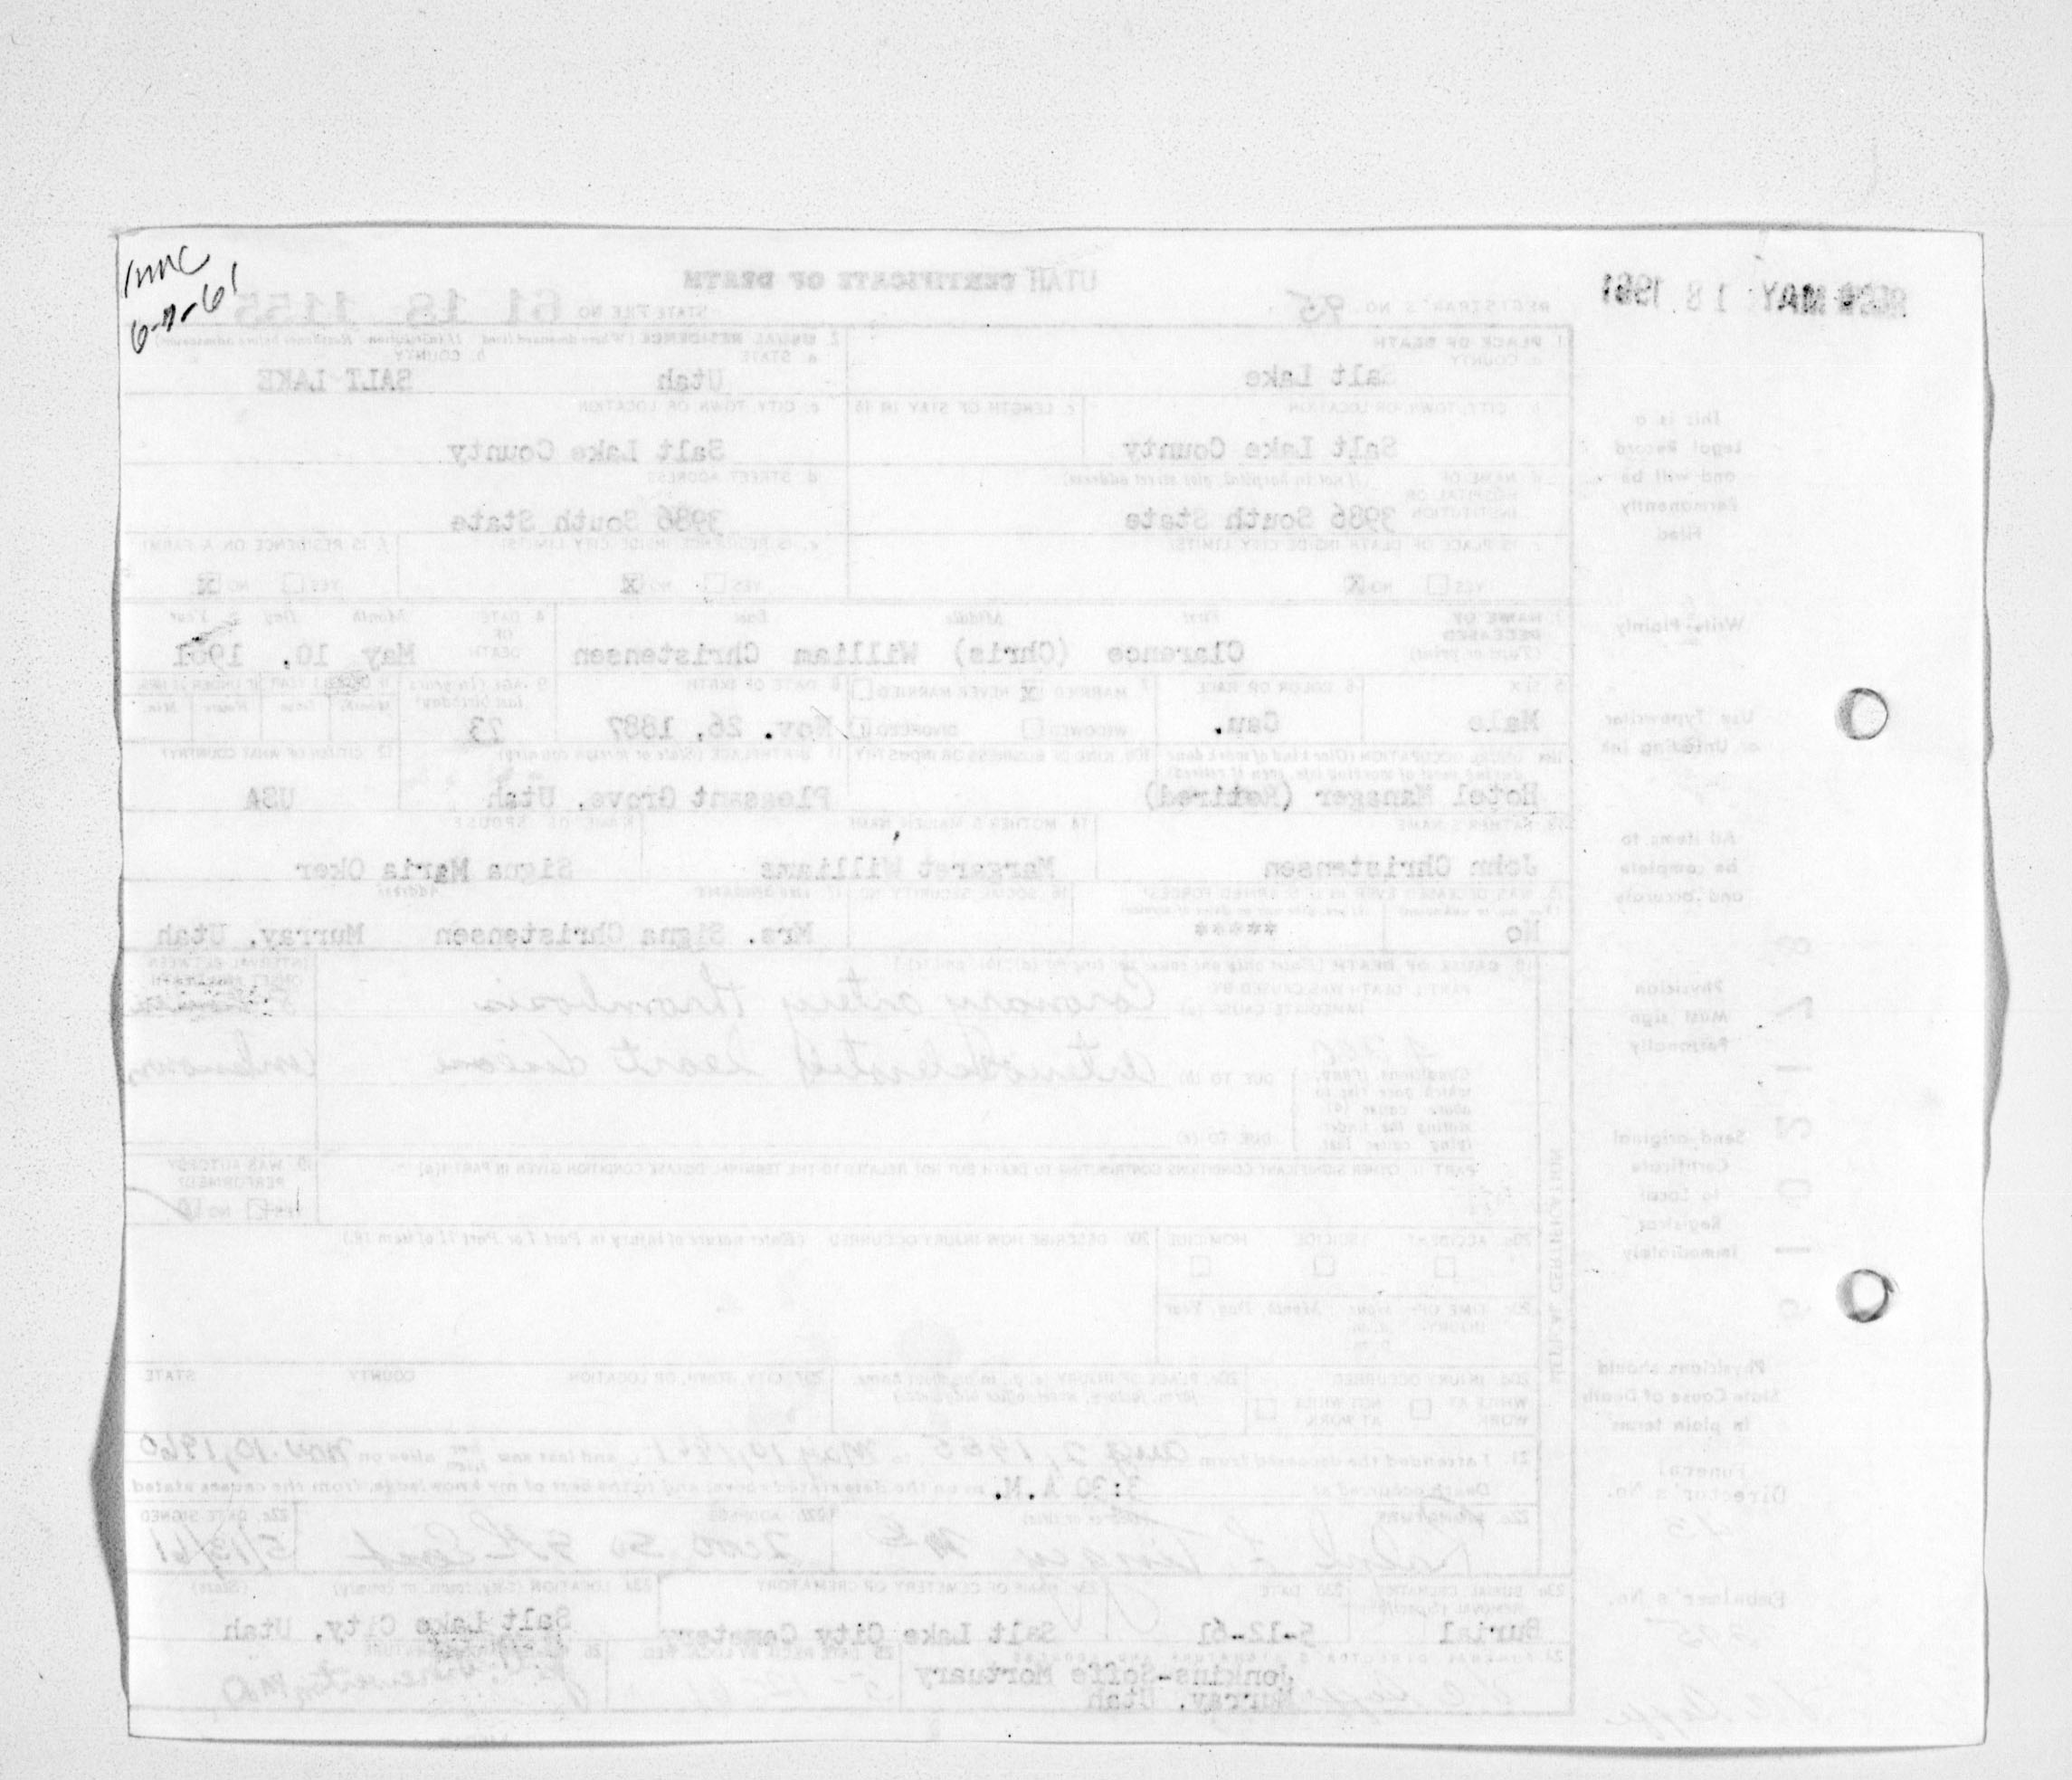 mmc
6-7-61
REC'D MAY 18 1961
UTAH CERTIFICATE OF DEATH
REGISTRAR'S NO. 95
STATE FILE NO. 61 18 1155
1. PLACE OF DEATH
a. COUNTY
Salt Lake
2. USUAL RESIDENCE (Where deceased lived. If institution: Residence before admission)
a. STATE
Utah
b. COUNTY
SALT LAKE
b. CITY, TOWN, OR LOCATION
Salt Lake County
c. LENGTH OF STAY IN 1b
c. CITY, TOWN OR LOCATION
Salt Lake County
d. NAME OF HOSPITAL OR INSTITUTION
(If not in hospital, give street address)
3986 South State
d. STREET ADDRESS
3986 South State
e. IS PLACE OF DEATH INSIDE CITY LIMITS?
YES NO X
e. IS RESIDENCE INSIDE CITY LIMITS?
YES NO X
f. IS RESIDENCE ON A FARM?
YES NO X
3. NAME OF DECEASED (Type or print)
First Middle Last
Clarence (Chris) William Christensen
4. DATE OF DEATH
Month Day Year
May 10, 1961
5. SEX
Male
6. COLOR OR RACE
Cau.
7. MARRIED X NEVER MARRIED
WIDOWED DIVORCED
8. DATE OF BIRTH
Nov. 26, 1887
9. AGE (In years last birthday)
73
IF UNDER 1 YEAR IF UNDER 24 HRS.
Months Days Hours Min.
10a. USUAL OCCUPATION (Give kind of work done during most of working life, even if retired)
Hotel Manager (Retired)
10b. KIND OF BUSINESS OR INDUSTRY
11. BIRTHPLACE (State or foreign country)
Pleasant Grove, Utah
12. CITIZEN OF WHAT COUNTRY?
USA
13. FATHER'S NAME
John Christensen
14. MOTHER'S MAIDEN NAME
Margaret Williams
NAME OF SPOUSE
Signa Maria Oker
15. WAS DECEASED EVER IN U. S. ARMED FORCES?
No
*****
16. SOCIAL SECURITY NO.
17. INFORMANT Address
Mrs. Signa Christensen Murray, Utah
18. CAUSE OF DEATH (Enter only one cause per line for (a), (b), and (c).)
PART I. DEATH WAS CAUSED BY:
IMMEDIATE CAUSE (a) Coronary artery thrombosis
INTERVAL BETWEEN ONSET AND DEATH
Conditions, if any, which gave rise to above cause (a), stating the underlying cause last.
DUE TO (b) Arteriosclerotic heart disease Unknown
DUE TO (c)
PART II. OTHER SIGNIFICANT CONDITIONS CONTRIBUTING TO DEATH BUT NOT RELATED TO THE TERMINAL DISEASE CONDITION GIVEN IN PART I(a)
19. WAS AUTOPSY PERFORMED?
YES NO
20a. ACCIDENT SUICIDE HOMICIDE
20b. DESCRIBE HOW INJURY OCCURRED. (Enter nature of injury in Part I or Part II of item 18.)
20c. TIME OF INJURY Hour Month, Day, Year
a.m.
p.m.
20d. INJURY OCCURRED
WHILE AT WORK NOT WHILE AT WORK
20e. PLACE OF INJURY (e.g., in or about home, farm, factory, street, office bldg., etc.)
20f. CITY, TOWN, OR LOCATION COUNTY STATE
21. I attended the deceased from Aug 2, 1955 to May 10, 1961 and last saw him alive on Nov. 10, 1960
Death occurred at 3:30 A.M. m on the date stated above; and to the best of my knowledge, from the causes stated.
22a. SIGNATURE (Degree or title)
Ralph E. Tingey MD
22b. ADDRESS
2000 So 9th East
22c. DATE SIGNED
5/13/61
23a. BURIAL, CREMATION, REMOVAL (Specify)
Burial
23b. DATE
5-12-61
23c. NAME OF CEMETERY OR CREMATORY
Salt Lake City Cemetery
23d. LOCATION (City, town, or county) (State)
Salt Lake City, Utah
24. FUNERAL DIRECTOR'S SIGNATURE AND ADDRESS
Jenkins-Soffe Mortuary
Murray, Utah
25. DATE REC'D BY LOCAL REG.
5-12-61
26. REGISTRAR'S SIGNATURE
MEDICAL CERTIFICATION
This is a
Legal Record
and will be
Permanently
Filed
Write Plainly
Use Typewriter
or Unfading Ink
All items to
be complete
and accurate
Physician
Must sign
Personally
Send original
Certificate
to Local
Registrar
immediately
Physicians should
State Cause of Death
in plain terms
Funeral
Director's No.
Embalmer's No.